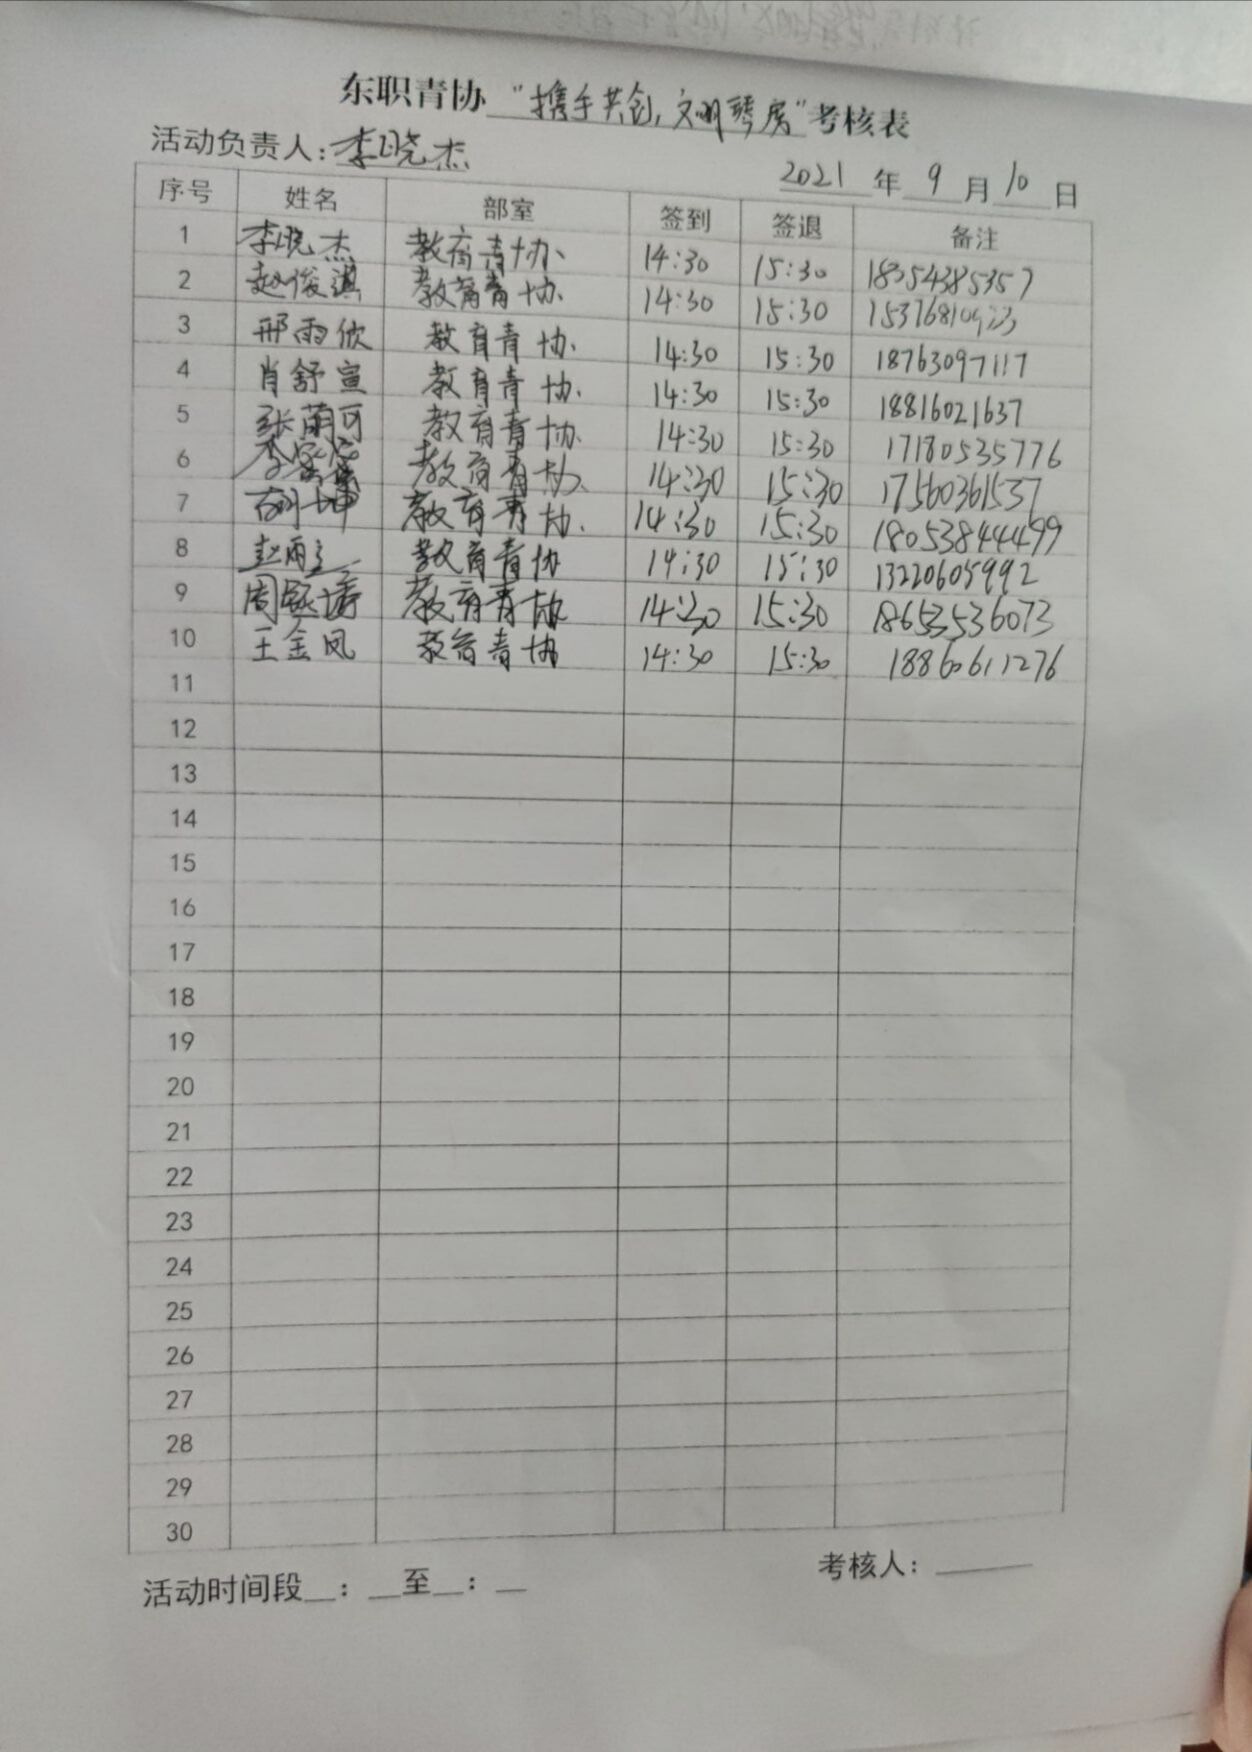 东职青协 "携手共创,文明琴房" 考核表
活动负责人:李晓杰
2021 年 9 月 10 日
序号 姓名 部室 签到 签退 备注
1 李晓杰 教育青协 14:30 15:30 18054385357
2 赵俊淇 教育青协 14:30 15:30
3 邢雨欣 教育青协 14:30 15:30 18763097117
4 肖舒宣 教育青协 14:30 15:30 18816021637
5 张萌可 教育青协 14:30 15:30 17180535776
6 教育青协 14:30 15:30 17560361537
7 坤 教育青协 14:30 15:30 18053844499
8 赵雨 教育青协 14:30 15:30 13220605992
9 周 教育青协 14:30 15:30 18653536073
10 王金凤 教育青协 14:30 15:30 18860611276
11
12
13
14
15
16
17
18
19
20
21
22
23
24
25
26
27
28
29
30
活动时间段__:__至__:__
考核人: